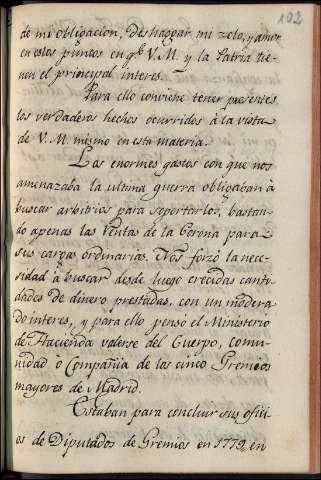 102
de mi obligacion, deshaogar mi zelo, y amor
en estos puntos en qᵉ V. M. y la Patria tie-
nen el principal interes.
Para ello conviene tener presentes
los verdaderos hechos ocurridos à la vista
de V. M. mismo en esta materia.
Los enormes gastos con que nos
amenazaba la ultima guerra obligaban à
buscar arbitrios para soportarlos, bastan-
do apenas las rentas de la Corona para
sus cargas ordinarias. Nos forzó la nece-
sidad à buscar desde luego crecidas canti-
dades de dinero prestadas, con un modera-
do interes, y para ello pensó el Ministerio
de Hacienda valerse del Cuerpo, comu-
nidad ò Compañia de los cinco Gremios
mayores de Madrid.
Estaban para concluir sus ofici-
os de Diputados de Gremios en 1779 en